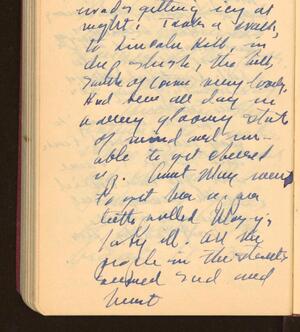 roads getting icy at
night. Took a walk
to Lincoln Hill, in
the slush, the hills
south of Cairo very lovely.
Had been all day in
a very gloomy state
of mind and un-
able to get cheered
up. Aunt Mary went
to get her
teeth pulled
All the
people in the streets
seemed sad and